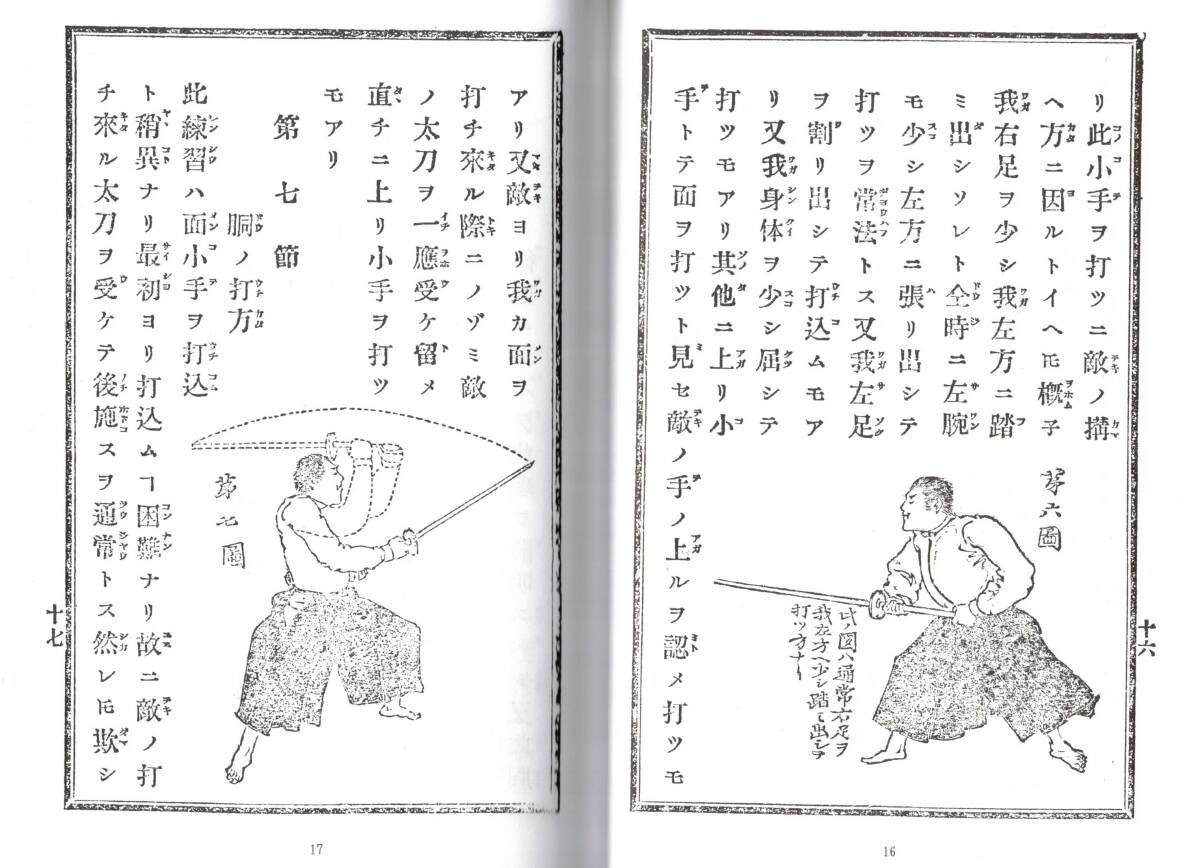 リ此小手ヲ打ツニ敵ノ搆
ヘ方ニ因ルトイヘ𪜈概子
我右足ヲ少シ我左方ニ踏
ミ出シソレト仝時ニ左腕
モ少シ左方ニ張リ出シテ
打ツヲ常法トス又我左足
ヲ割リ出シテ打込ムモア
リ又我身体ヲ少シ屈シテ
打ツモアリ其他ニ上リ小
手トテ面ヲ打ツト見セ敵ノ手ノ上ルヲ認メ打ツモ
第六圖
此ノ圖ハ通常右足ヲ
我左方ヘ少シ踏ミ出シテ
打ツ方ナリ
十六
16
アリ又敵ヨリ我カ面ヲ
打チ來ル際ニノゾミ敵
ノ太刀ヲ一應受ケ留メ
直チニ上リ小手ヲ打ツ
モアリ
第七節
胴ノ打方
此練習ハ面小手ヲ打込
ト稍異ナリ最初ヨリ打込ムヿ困難ナリ故ニ敵ノ打
チ來ル太刀ヲ受ケテ後施スヲ通常トス然レ𪜈欺シ
第七圖
十七
17